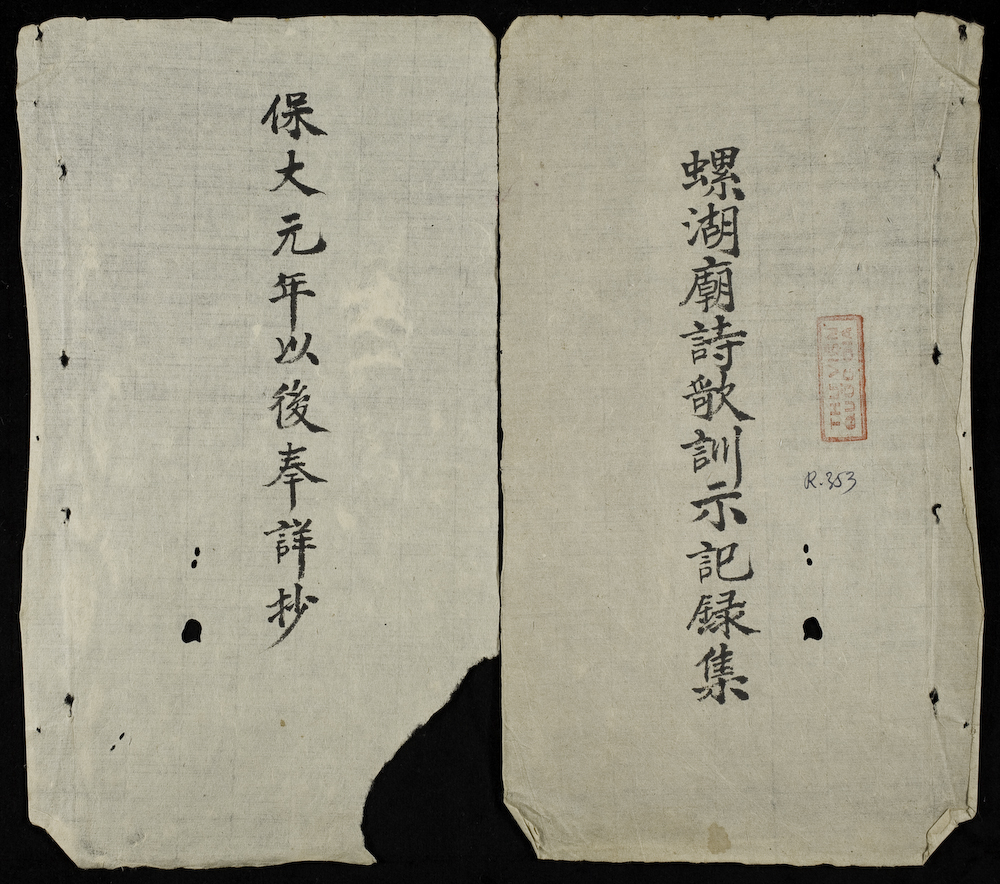 螺湖廟詩歌訓示記録集
R.353
保大元年以後奉詳抄